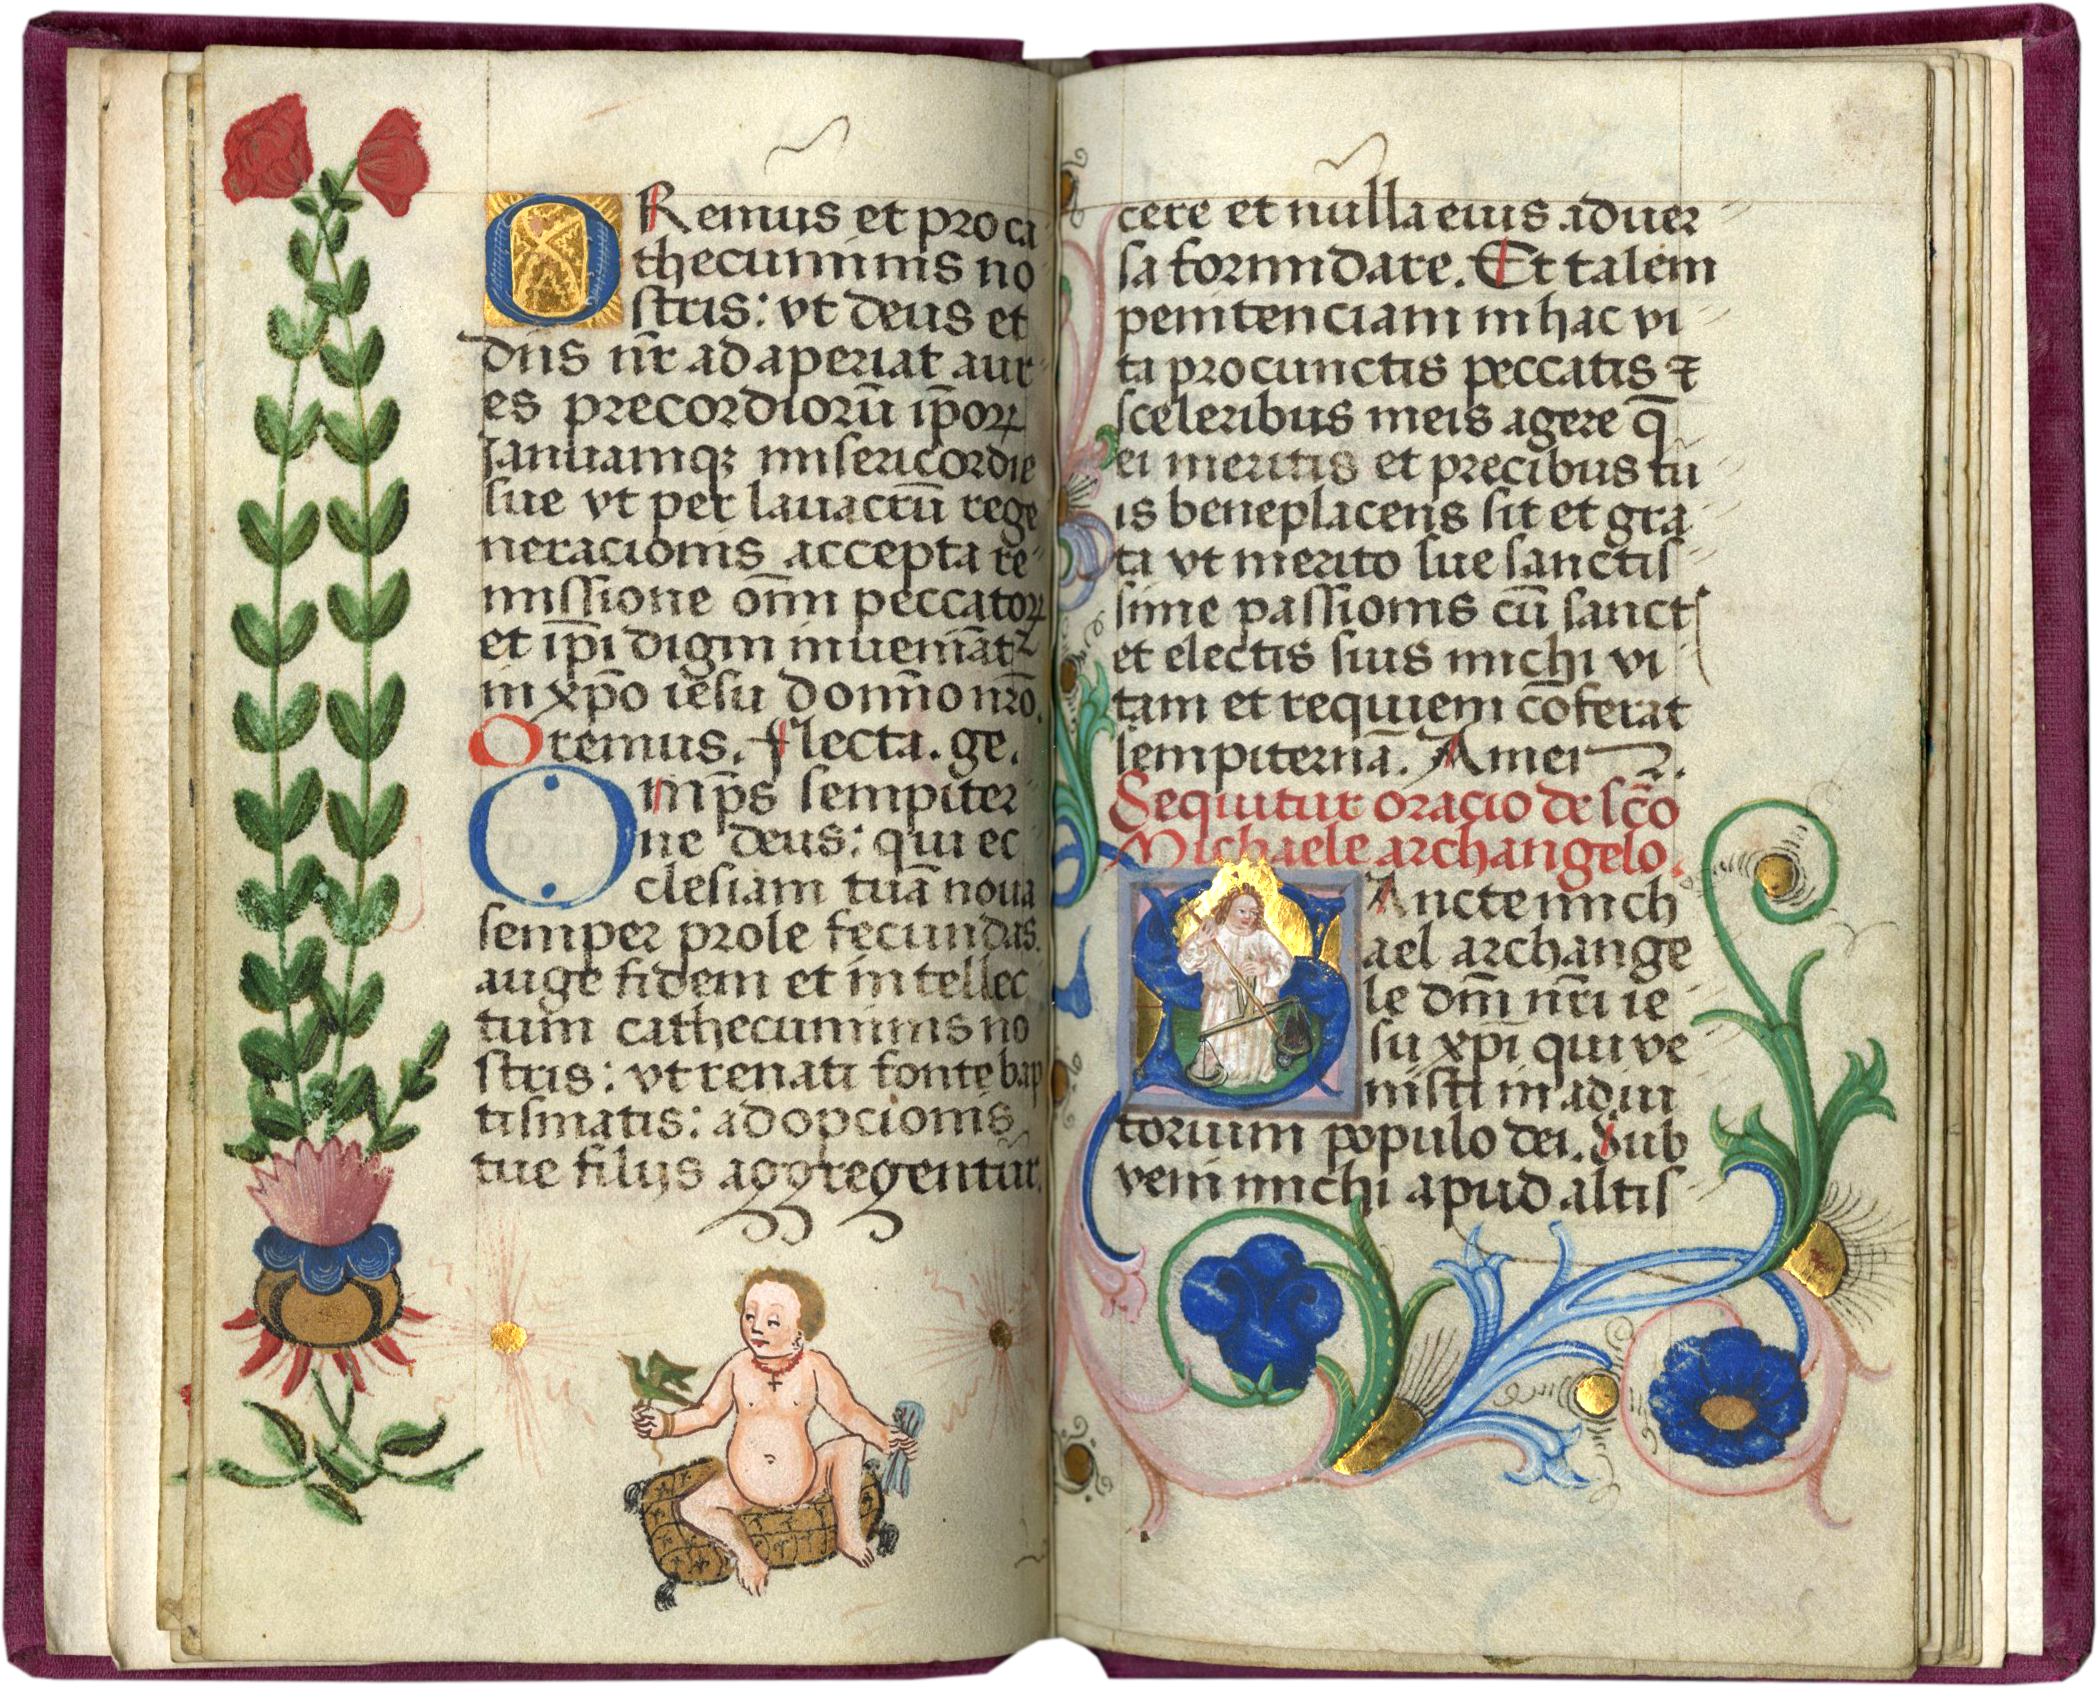 ORemus et pro ca
thecuminis no
stris: vt deus et
dn̄s nr̄ adaperiat aur
es precordiorū ip̄oꝝ
Ianuamqꝫ misericordie
sue vt per lauacrū rege
neracionis accepta re
missione om̄i peccatoꝝ
et ip̄i digni inueniāt᷑
in xp̄o iesu domīo nr̄o.
Oremus. flecta. ge.
Omp̄s sempiter
ne deus: qui ec
clesiam tuā noua
semper prole fecundas.
auge fidem et intellec
tum cathecuminis no
stris: vt renati fonte bap
tismatis: adopcionis
tue filijs aggregentur.
cere et nulla eius aduer
sa formidare. Et talem
penitenciam in hac vi
ta pro cunctis peccatis ⁊
sceleribus meis agere q̄
ei meritis et precibus tu
is beneplacens sit et gra
ta vt merito sue sanctis
sime passionis cū sanctꝭ
et electis suis michi vi
tam et requiem cōferat
sempiternā. Amen.
Sequitur oracio de scō
Michaele archangelo.
SAncte mich
ael archange
le dn̄i nr̄i ie
su xp̄i qui ve
nisti in adiu
torium populo dei. Sub
veni michi apud altis